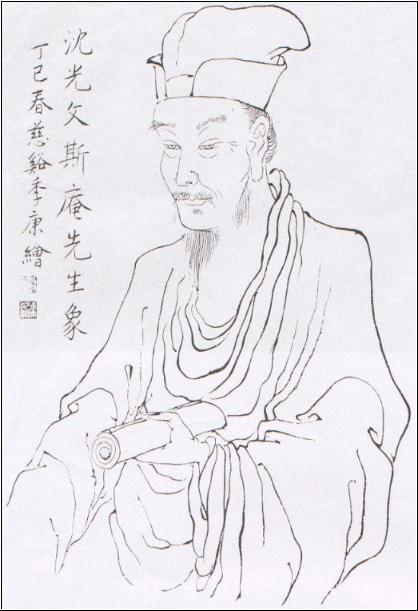 沈光文斯庵先生象
丁巳春慈谿季康繪